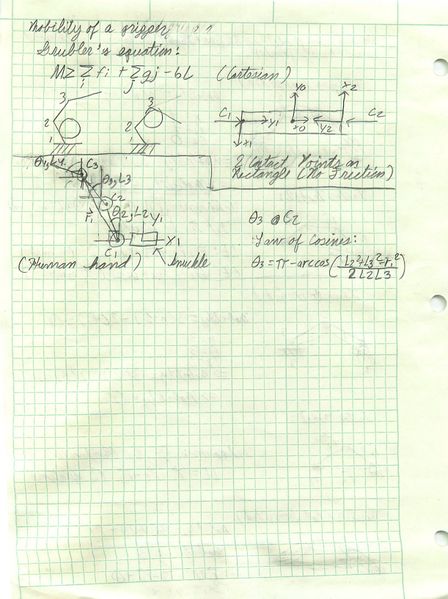 Mobility of a gripper
Grubler's equation:
M ≥ Σi fi + Σj gj - 6L (Cartesian)
3 3
2 2
1 1
y0 x2
C1 y1 x0 y2 C2
x1
2 Contact Points on
Rectangle (No Friction)
θ4, L4 C3
θ3, L3
C2
r1 θ2, L2 Y1
C1 X1
(Human hand) knuckle
θ3 @ C2
Law of Cosines:
θ3 = π - arccos (L2² + L3² - r1² / 2 L2 L3)